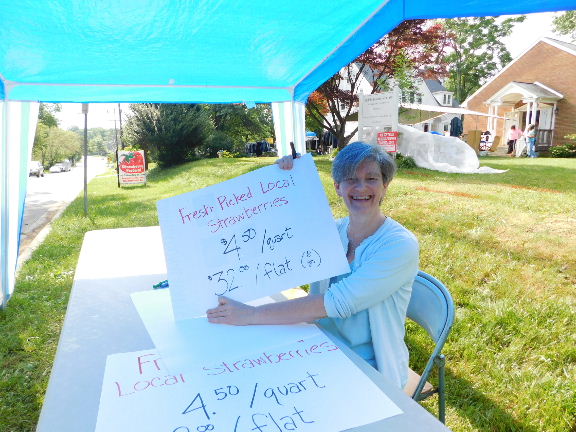 Fresh Picked Local
Strawberries
$4.50 /quart
$32.00 /flat (8 qts)
Local Strawberries
4.50 /quart
/flat
Strawberry
Festival